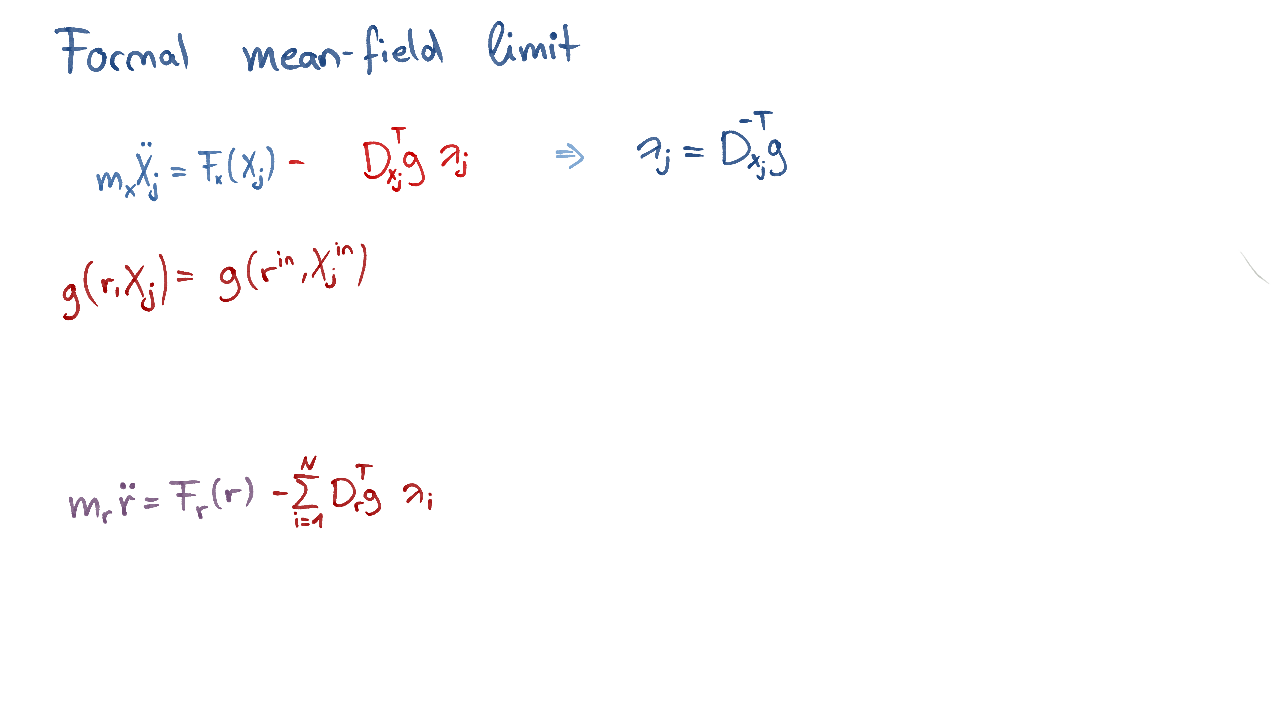 Formal mean-field limit
m_x Ẍ_j = F_x(X_j) - D_{x_j}^T g λ_j ⇒ λ_j = D_{x_j}^{-T} g
g(r, X_j) = g(r^{in}, X_j^{in})
m_r r̈ = F_r(r) - ∑_{i=1}^N D_r^T g λ_i